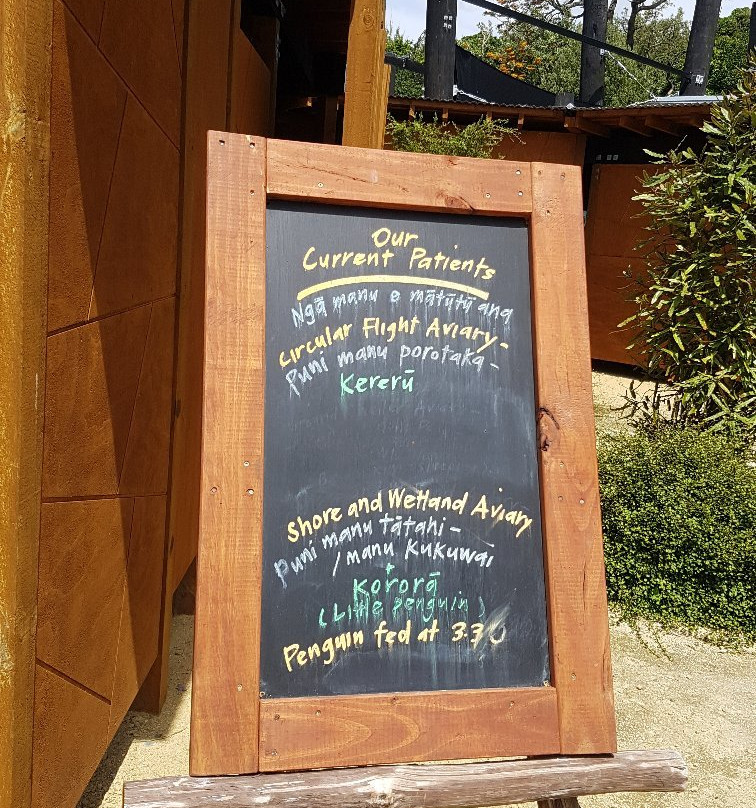 Our
Current Patients
Ngā manu e mātūtū ana
Circular Flight Aviary-
Puni manu porotaka-
Kererū
Shore and Wetland Aviary
Puni manu tātahi-
/manu Kukuwai
+
Kororā
(Little Penguin)
Penguin fed at 3.30